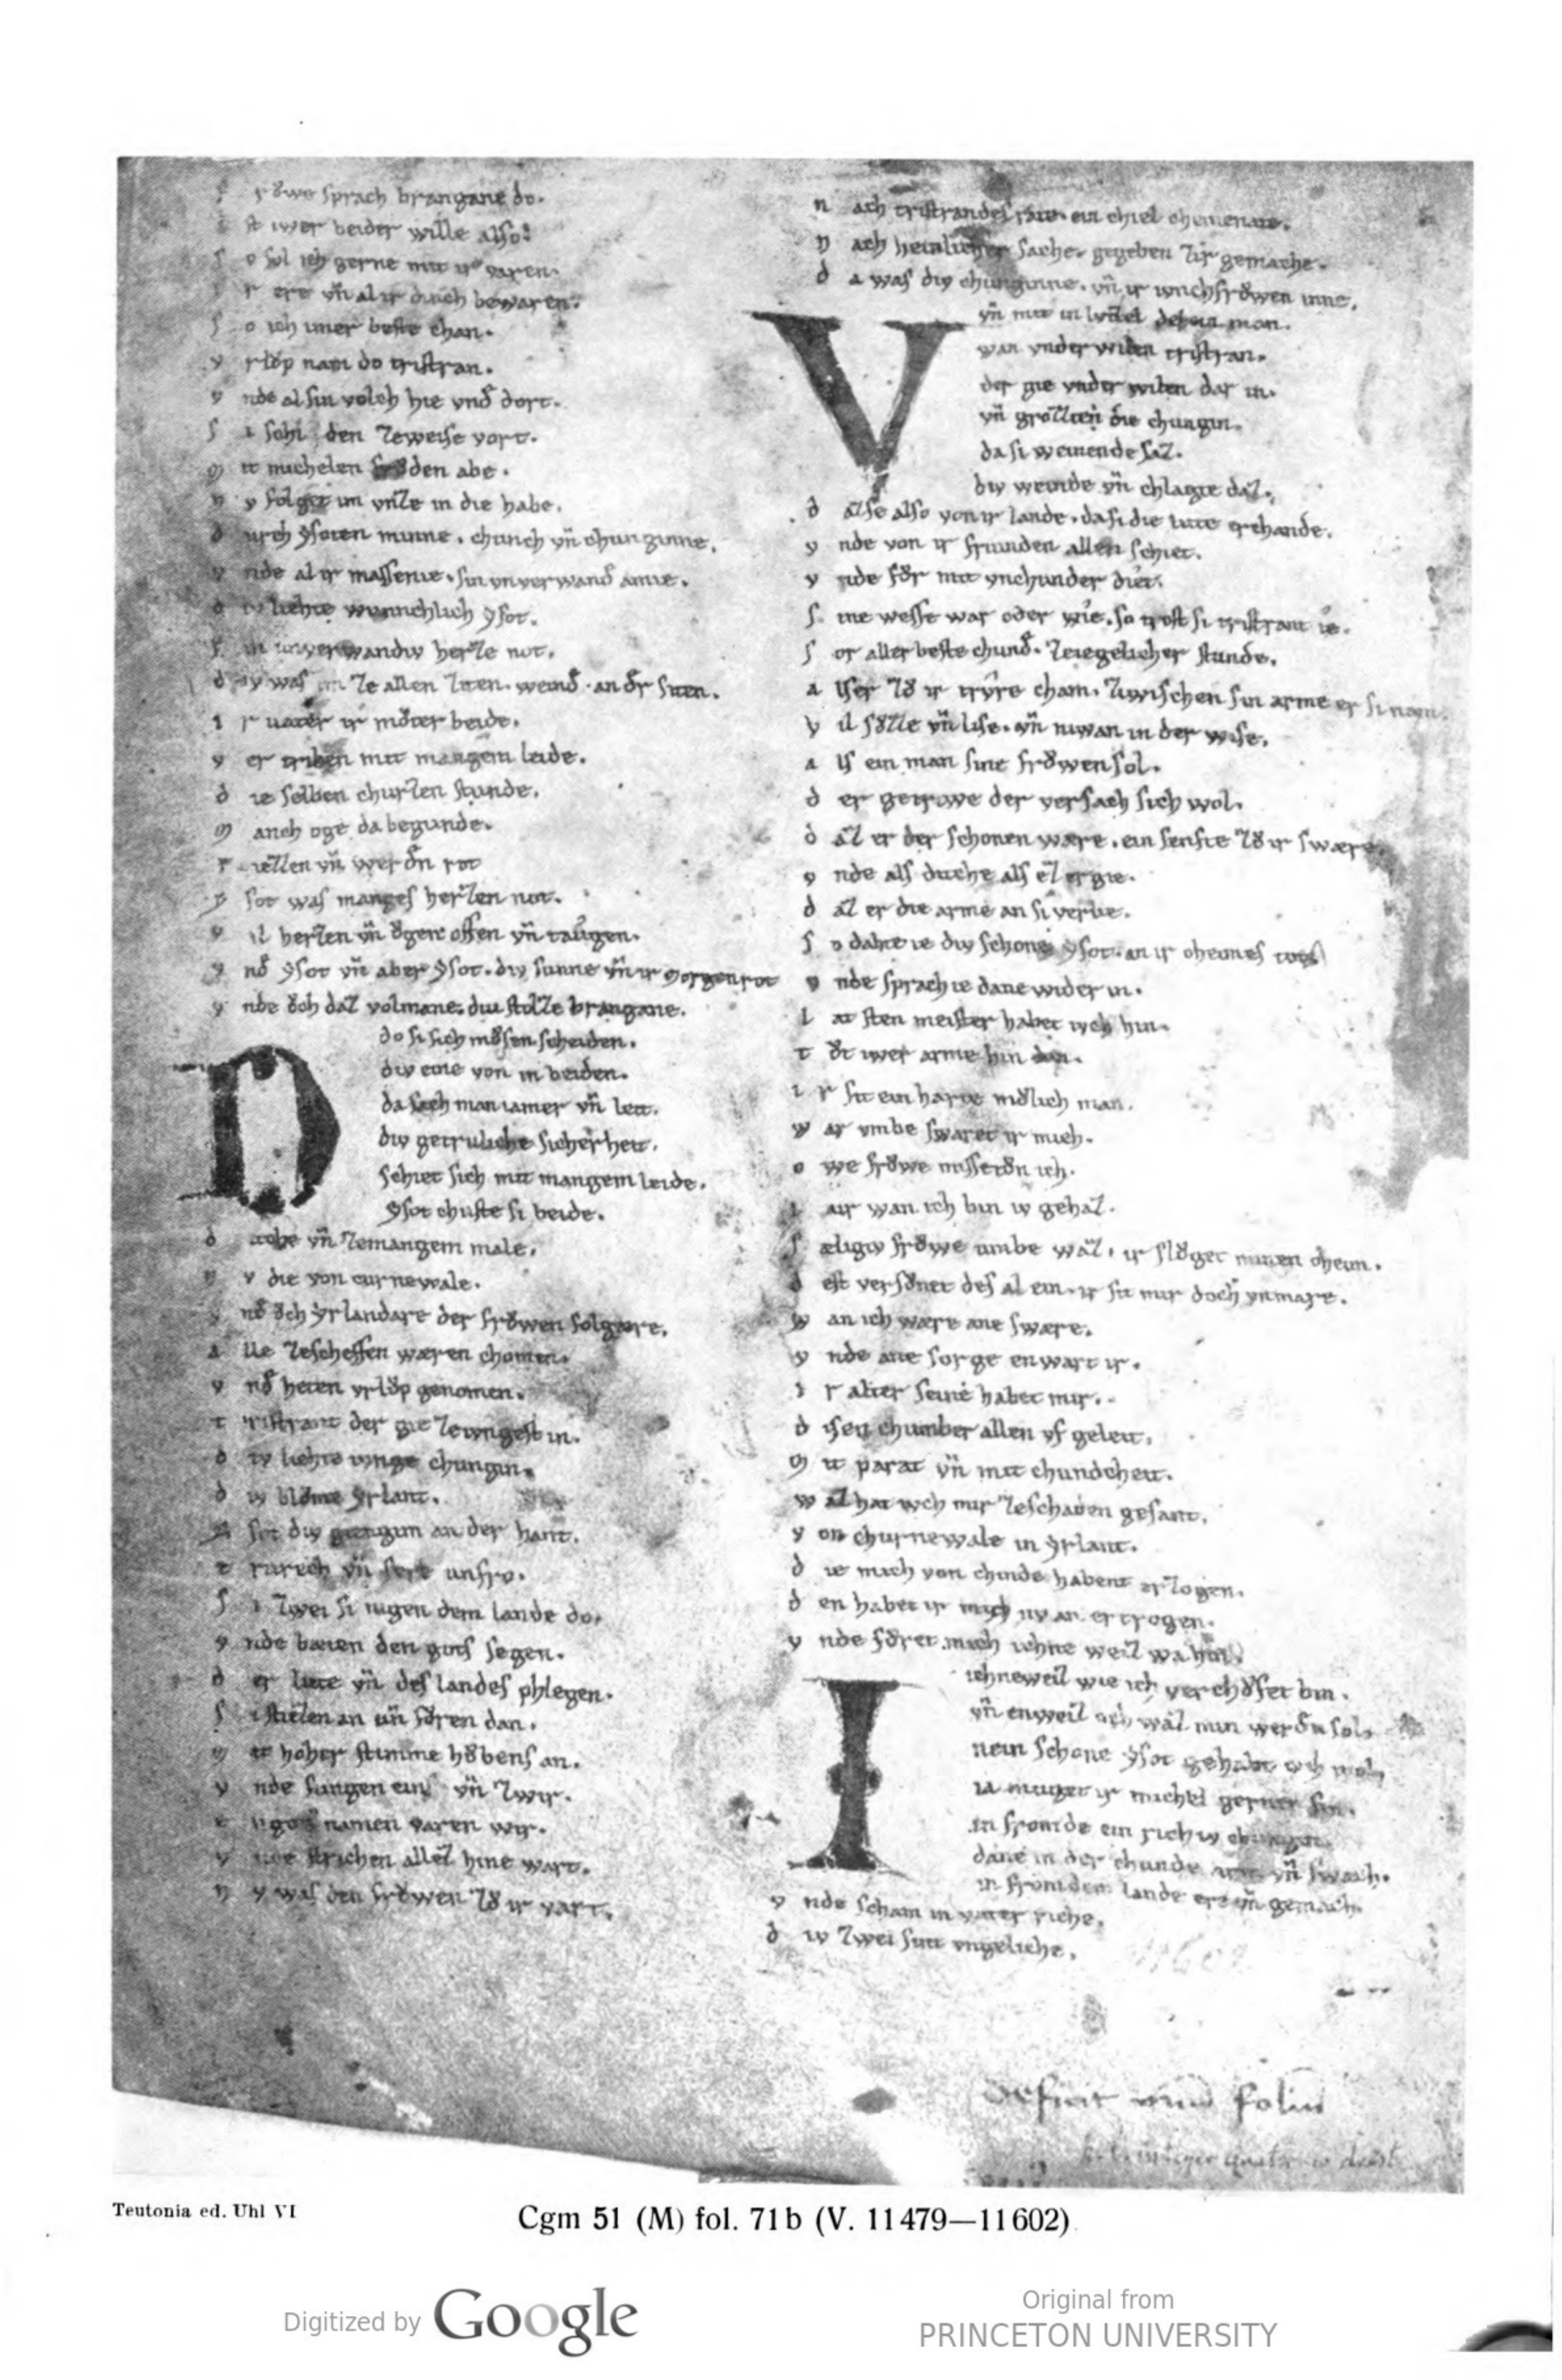 f röwe sprach brangane do.
i st iwer beider wille also:
s o sol ich gerne mit iv varen.
i r ere vñ al ir dinch bewaren.
s o ich imer beste chan.
v rlŏp nam do tristran.
v nde al sin volch hie vnd̄ dort.
s i schi den zeweise vort.
m it michelen den abe.
n v folget im vnze in die habe.
d urch ysoten minne. chunch vñ chunginne.
v nde al ir massenie. sin vnverwand̄ amie.
d iv liehte wunnchlich ysot.
s in unverwandiv herze not.
d iv was im ze allen ziten. weind̄. an dr̄ siten.
i r uater ir mŏter beide.
v er triben mit mangem leide.
d ie selben churzen stunde.
m anch oge da begunde.
r iezzen vñ werdn̄ rot
y sot was manges herzen not.
v il herzen vñ ŏgen offen vñ taugen.
v nd̄ ysot vñ aber ysot. div sunne vñ ir morgenrot
v nde ŏch daz volmane. diu stolze brangane.
D do si sich mŏsen scheiden.
div eine von in beiden.
da sach man iamer vñ leit.
div getruliche sicherheit.
schiet sich mit mangem leide.
ysot chuste si beide.
d icche vñ zemangem male.
n v die von curnewale.
v nd̄ ŏch yrlandare der frŏwen folgære.
a lle zescheffen waren chomen.
v nd̄ heten vrlŏp genomen.
t ristrant der gie zeiungest in.
d iv liehte iunge chungin.
d iv blŏme yrlant.
y sot div giengim an der hant.
t rurech vñ sere unfro.
s i zwei si nigen dem lande do.
v nde baten den gots segen.
d er liute vñ des landes phlegen.
s i stiezen an uñ fŏren dan.
m it hoher stimme hŏbens an.
v nde sungen eins vñ zwir.
i n gots namen varen wir.
v nde strichen allez hine wart.
n v was den frŏwen zŏ ir vart.
n ach tristrandes rate. ein chiel chemenate.
n ach heinlicher sache. gegeben zir gemache.
d a was div chunginne. vñ ir iunchfrŏwen inne.
V vñ mit in lvtzel dehein man.
wan vnder wilen tristran.
der gie vnder wilen dar in.
vñ grŏzten die chungin.
da si weinende saz.
div weinde vñ chlagte daz.
d az se also von ir lande. da si die lute erchande.
v nde von ir friunden allen schiet.
v nde fŏr mit vnchunder diet.
s ine wesse war oder wie. so trost si tristrant ie.
s or aller beste chund̄. zeiegelicher stunde.
a lser zŏ ir tryre cham. zwischen sin arme er si nam.
v il sŏzze vñ lise. vñ niwan in der wise.
a ls ein man sine frŏwen sol.
d er getrowe der versach sich wol.
d az er der schonen ware. ein senfte zŏ ir sware.
v nde als diche als ez ergie.
d az er die arme an si verlie.
s o dahte ie div schone ysot. an ir oheimes tot
v nde sprach ie dane wider in.
l at sten meister habet iuch hin.
t ŏt iwer arme hin dan.
i r sit ein harte mŏlich man.
w ar vmbe swaret ir mich.
o we frŏwe missetŏn ich.
i air wan ich bin iv gehaz.
s æligiv frŏwe umbe waz. ir slŏget minen oheim.
d est versŏnet des al ein. ir sit mir doch vnmare.
w an ich ware ane sware.
v nde ane sorge enwart ir.
i r alter seine habet mir.
d isen chumber allen vf geleit.
m it parat vñ mit chundcheit.
w az hat iuch mir zeschaden gesant.
v on churnewale in yrlant.
d ie mich von chinde habent erzogen.
d en habet ir mich nv an ertrogen.
v nde fŏret mich ichne weiz wa hin.
I ichneweiz wie ich verchŏfet bin.
vñ enweiz ŏch waz min werdn̄ sol.
nein schone ysot gehabt iuch wol.
ia muget ir michel gerner sin.
in fromde ein richiv chungin.
dane in der chunde arm vñ swach.
in fromdem lande ere vñ gemach.
v nde scham in vater riche.
d iv zwei sint vngeliche.
deficit unum folium
Teutonia ed. Uhl VI
Cgm 51 (M) fol. 71b (V. 11479—11602)
Digitized by Google
Original from
PRINCETON UNIVERSITY